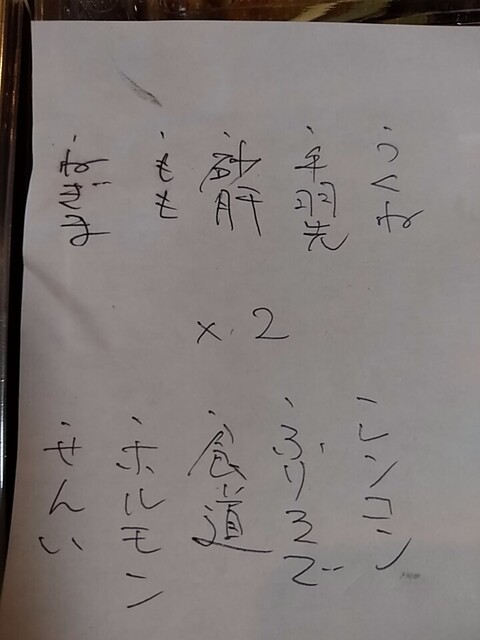 ・つくね
・手羽先
・砂肝
・もも
・ねぎま
×2
・レンコン
・ふりそで
・食道
・ホルモン
・せんい